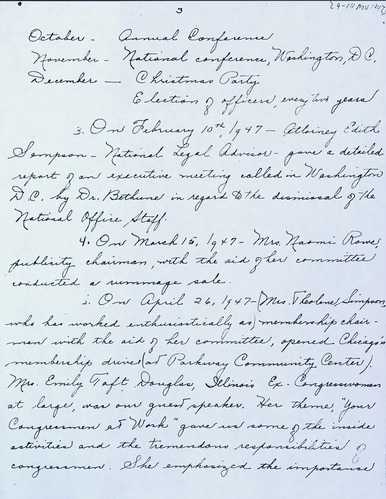 3
[9-14 Nov 1947]
October - Annual Conference
November - National conference, Washington, D.C.
December — Christmas Party
Election of officers, every two years
3. On February 10th, 1947 - Attorney Edith
Sampson - National Legal Advisor - gave a detailed
report of an executive meeting called in Washington
D.C. by Dr. Bethune in regard to the dismissal of the
National Office Staff.
4. On March 15, 1947 - Mrs. Naomi Rowe
publicity chairman, with the aid of her committee
conducted a rummage sale.
5. On April 26, 1947 - [Mrs. Theolene Simpson,
who has worked enthusiastically as] membership chair-
man with the aid of her committee, opened Chicago's
membership drive (at Parkway Community Center).
Mrs. Emily Taft Douglas, Illinois Ex-Congresswoman
at large, was our guest speaker. Her theme, "Your
Congressmen at Work" gave us some of the inside
activities and the tremendous responsibilities of
congressmen. She emphasized the importance